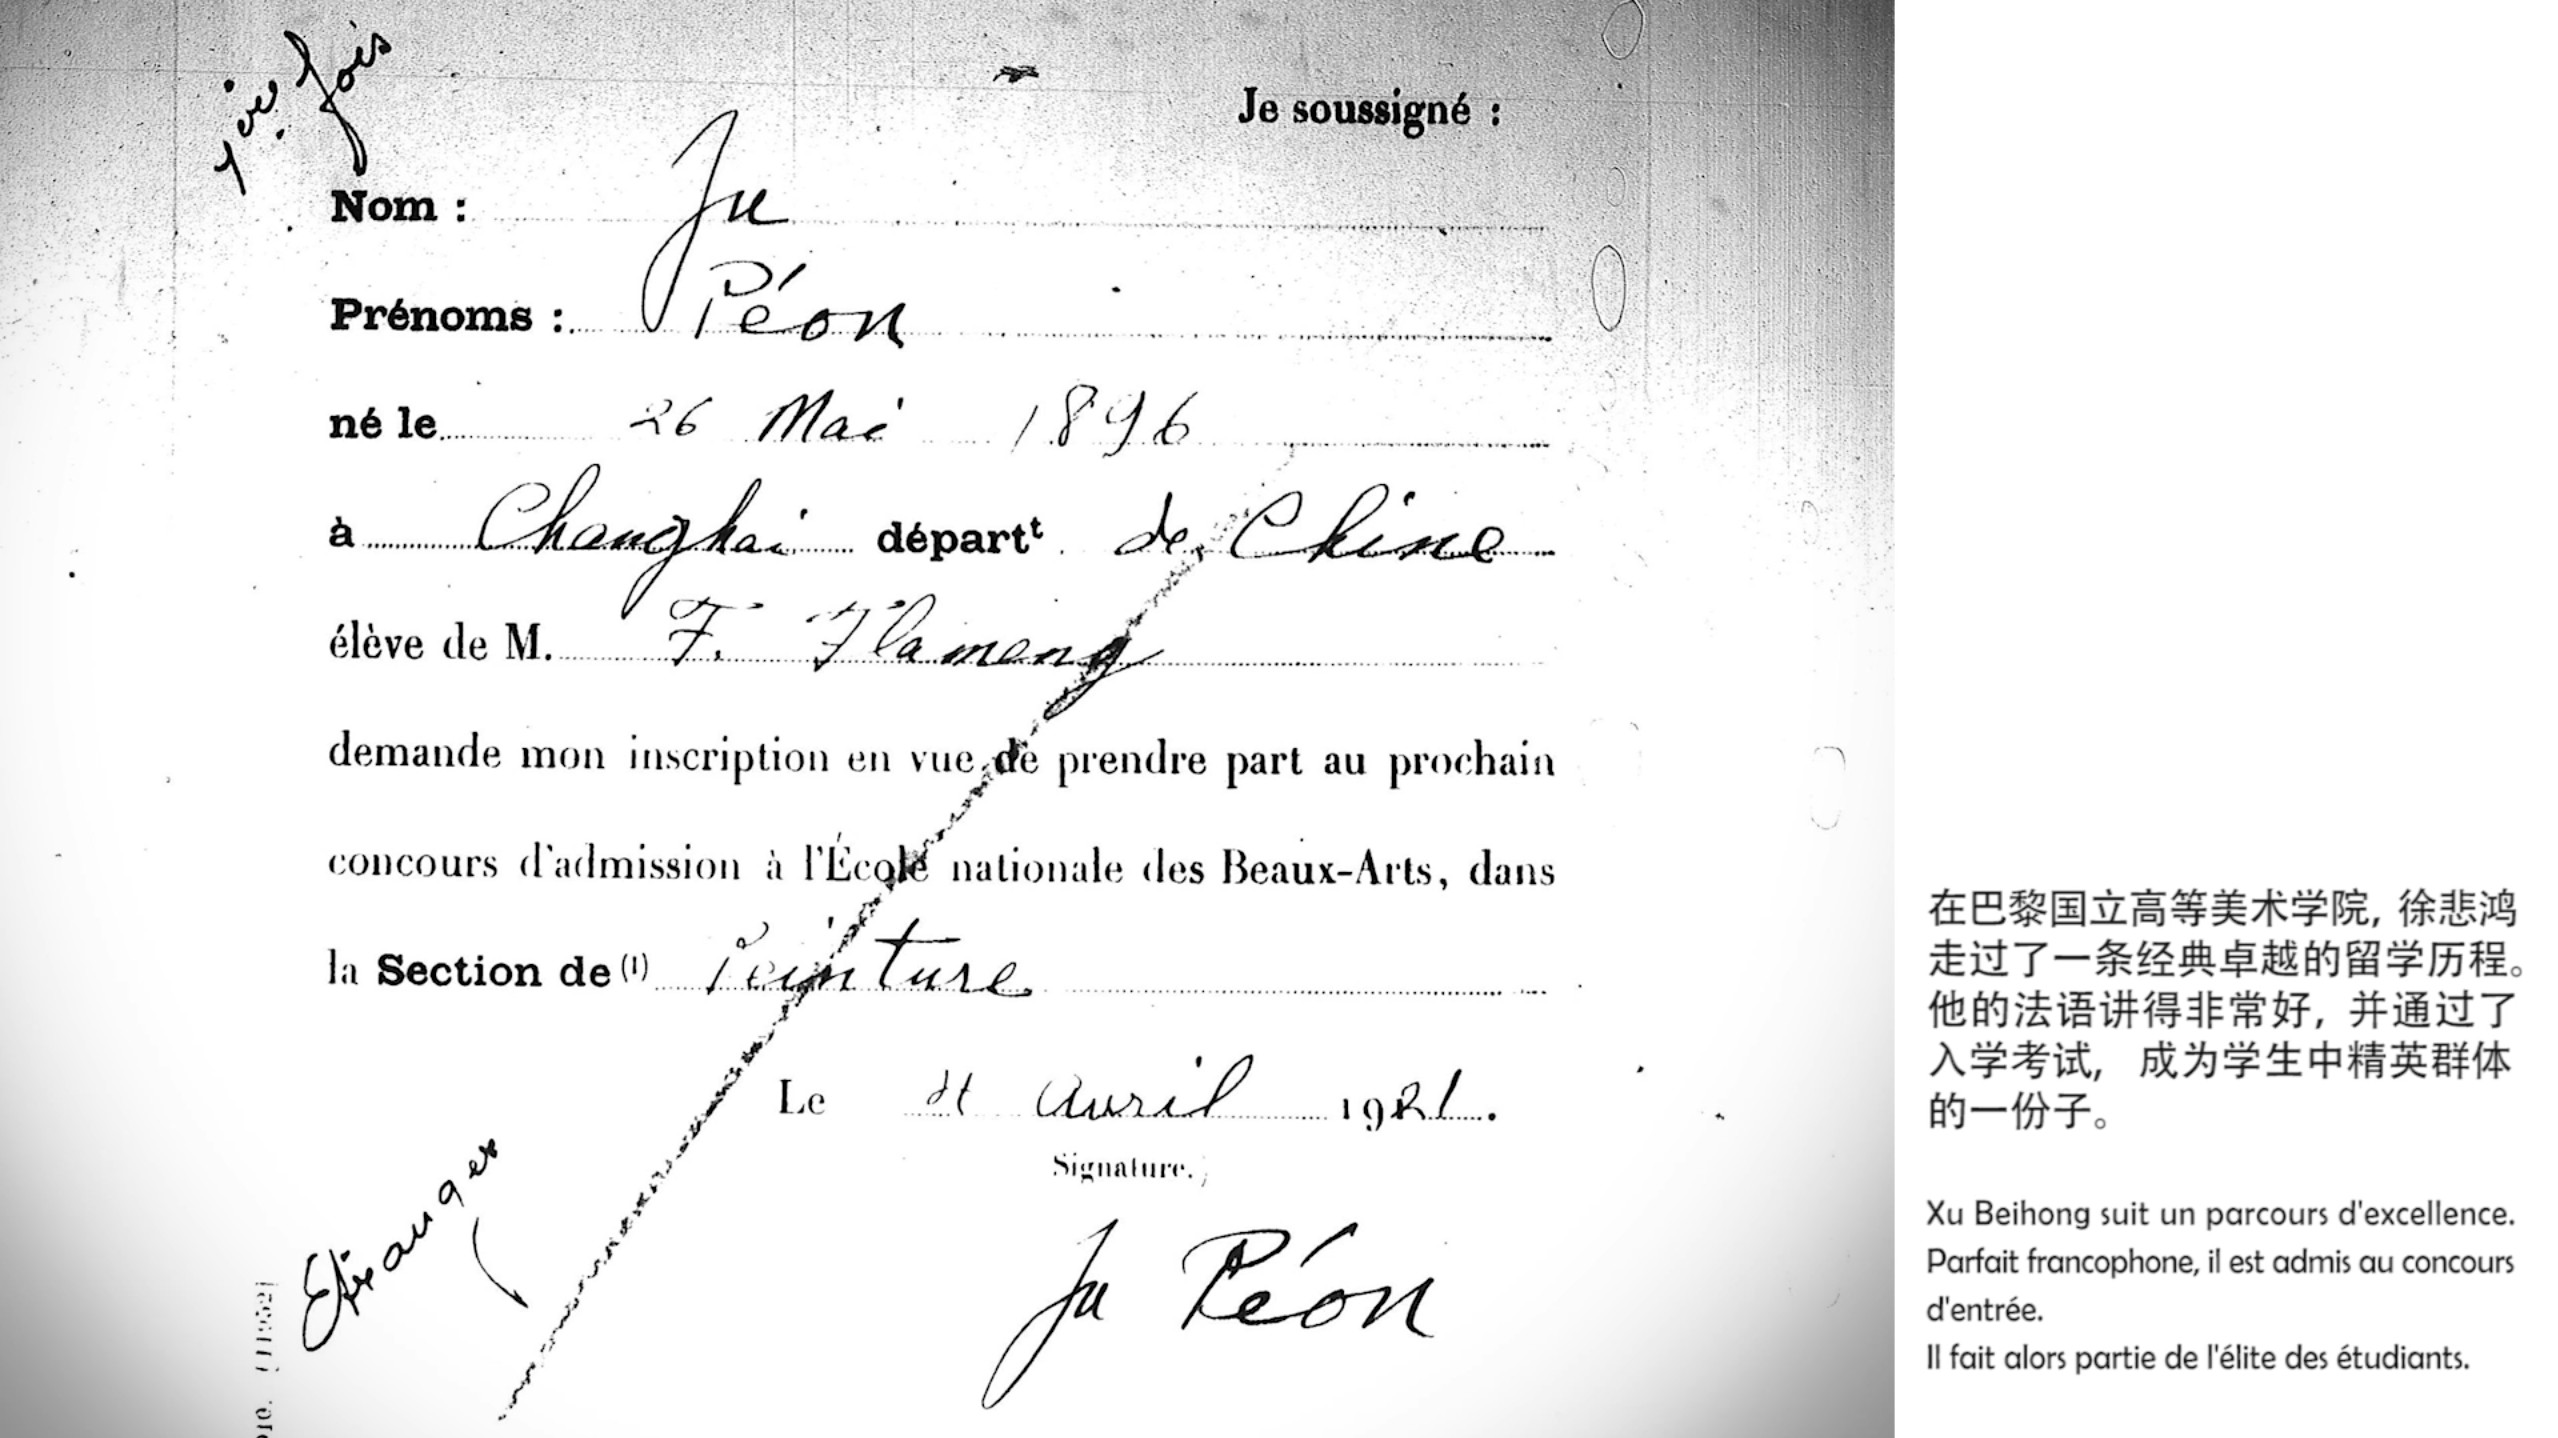 1ère fois
Je soussigné :
Nom : Ju
Prénoms : Péon
né le 26 Mai 1896
à Changhai départᵗ de Chine
élève de M. F. Flameng
demande mon inscription en vue de prendre part au prochain
concours d'admission à l'École nationale des Beaux-Arts, dans
la Section de (1) Peinture
Le avril 1921.
Signature.
Ju Péon
Etranger
在巴黎国立高等美术学院, 徐悲鸿
走过了一条经典卓越的留学历程。
他的法语讲得非常好, 并通过了
入学考试, 成为学生中精英群体
的一份子。
Xu Beihong suit un parcours d'excellence.
Parfait francophone, il est admis au concours
d'entrée.
Il fait alors partie de l'élite des étudiants.